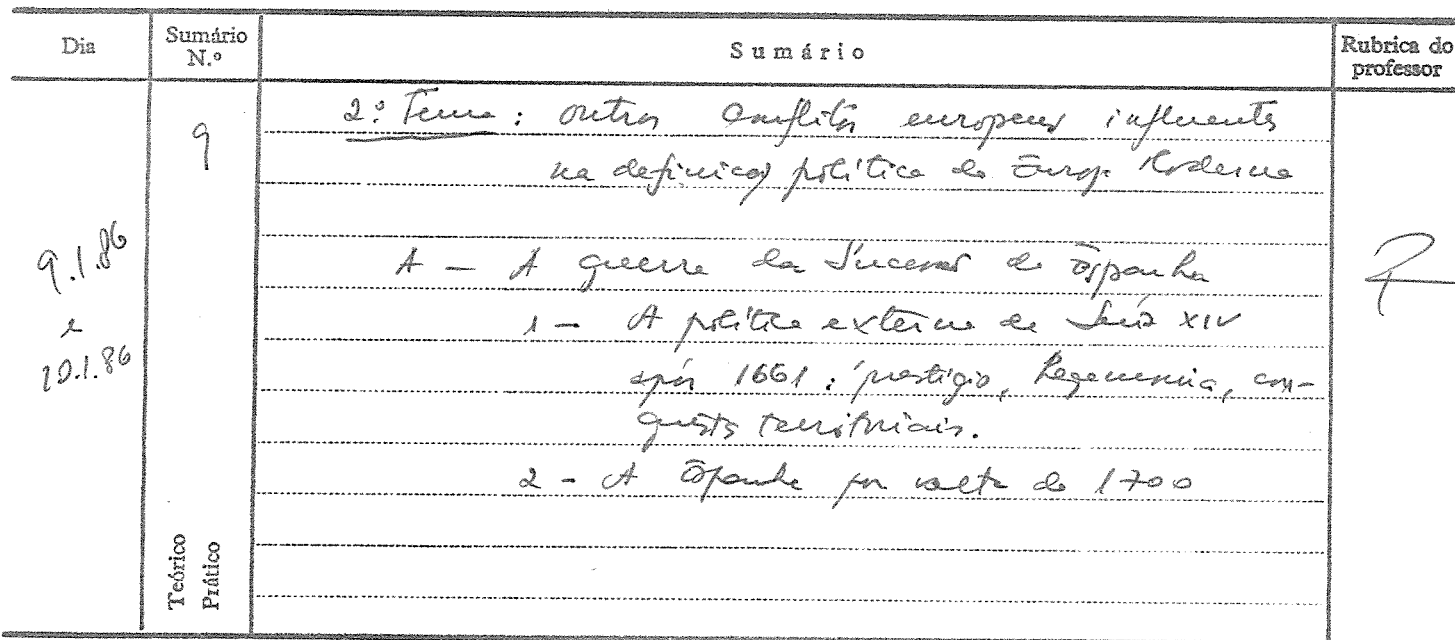 Dia
Sumário N.º
Sumário
Rubrica do professor
9.1.86
e
10.1.86
9
Teórico
Prático
2.º Tema: outros conflitos europeus influentes
na definição política da Europa Moderna
A - A guerra da Sucessão de Espanha
1 - A política externa de Luís XIV
após 1661: prestígio, hegemonia, con-
quistas territoriais.
2 - A Espanha por volta de 1700